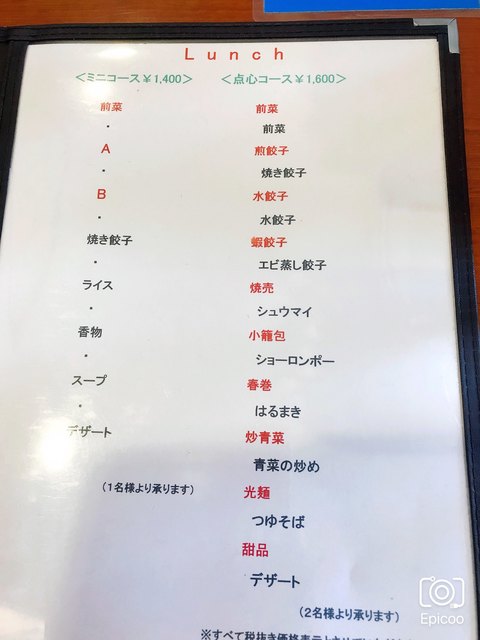 Lunch
＜ミニコース￥1,400＞
前菜
・
A
・
B
・
焼き餃子
・
ライス
・
香物
・
スープ
・
デザート
（1名様より承ります）
＜点心コース￥1,600＞
前菜
前菜
煎餃子
焼き餃子
水餃子
水餃子
蝦餃子
エビ蒸し餃子
焼売
シュウマイ
小籠包
ショーロンポー
春巻
はるまき
炒青菜
青菜の炒め
光麺
つゆそば
甜品
デザート
（2名様より承ります）
※すべて税抜き価格表示と
Epicoo